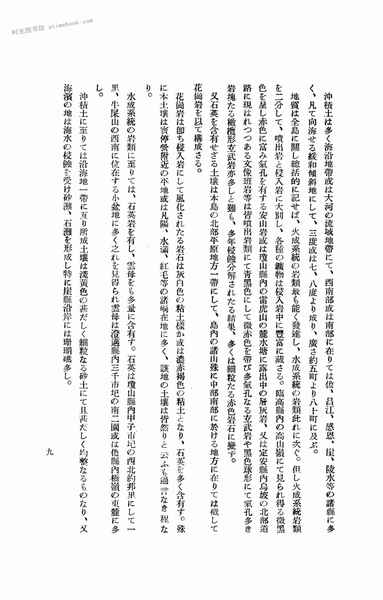 沖積土は多く海沿地帶或は大河の流域地帶にて、西南部或は南部に在りては儋、昌江、感恩、崖、陵水等の諸縣に多
く、凡て向海せる緩和傾斜地にして、三度或は七、八度より成り、廣さ約五町より八十町に及ぶ。
地質は全島に關し總括的に記せば、火成系統の岩類最も能く發達し、水成系統の岩類此れに次ぐ。但し火成系統岩類
を二分して、噴出岩と侵入岩に大別し、各種の鑛物は侵入岩中に豐富に藏さる。臨高縣內の高山嶺にて見られ得る微黑
色を呈し赤色に富み氣孔を有する安山岩或は瓊山縣內の雷虎山の麓水塘に露出中の層灰岩、又は定安縣內烏坡の北部道
路に現はれつつある文像斑岩等は皆噴出岩類にて靑黑色にして微赤色を帶び多氣孔なる玄武岩や黑色球形にて氣孔多き
岩塊たる橄欖形玄武岩亦多しと雖も、多年侵蝕分解されたる結果、多くは細粒たる赤色岩石に變ず。
又石英を含有せざる土壤は本島の北部平原地方一帶にして、島內の諸山殊に中部南部に於ける地方に在りては總して
花崗岩を以て構成さる。
花崗岩は卽ち侵入岩にして風化されたる岩石は灰白色の粘土樣か或は濃赤褐色の粘土となり、石英を多く含有す。殊
に本土壤は嘉積營附近の平地或は凡陽、水滿、紅毛等の諸峒在地に多く、該地の土壤は皆然りと云ふも過言なき程な
り。
水成系統の岩類に至りては、石英岩を有し、雲母をも多量に含有す。石英は瓊山縣內甲子市圮の西北約邦里にして一
里、牛尾山の西南に位在する小盆地に多く之れを見得られ雲母は澄邁縣內三千市圮の南二圖或は儋縣內極嶺の東麓に多
し。
沖積土に至りては沿海地一帶に亙り所成土壤は淺黃色の甚だしく細粒なる砂土にて且甚だしく均整なるものなり、又
海濱の地は海水の侵蝕を受け砂濱、石灘を形成し特に崖縣沿岸には珊瑚礁多し。
九